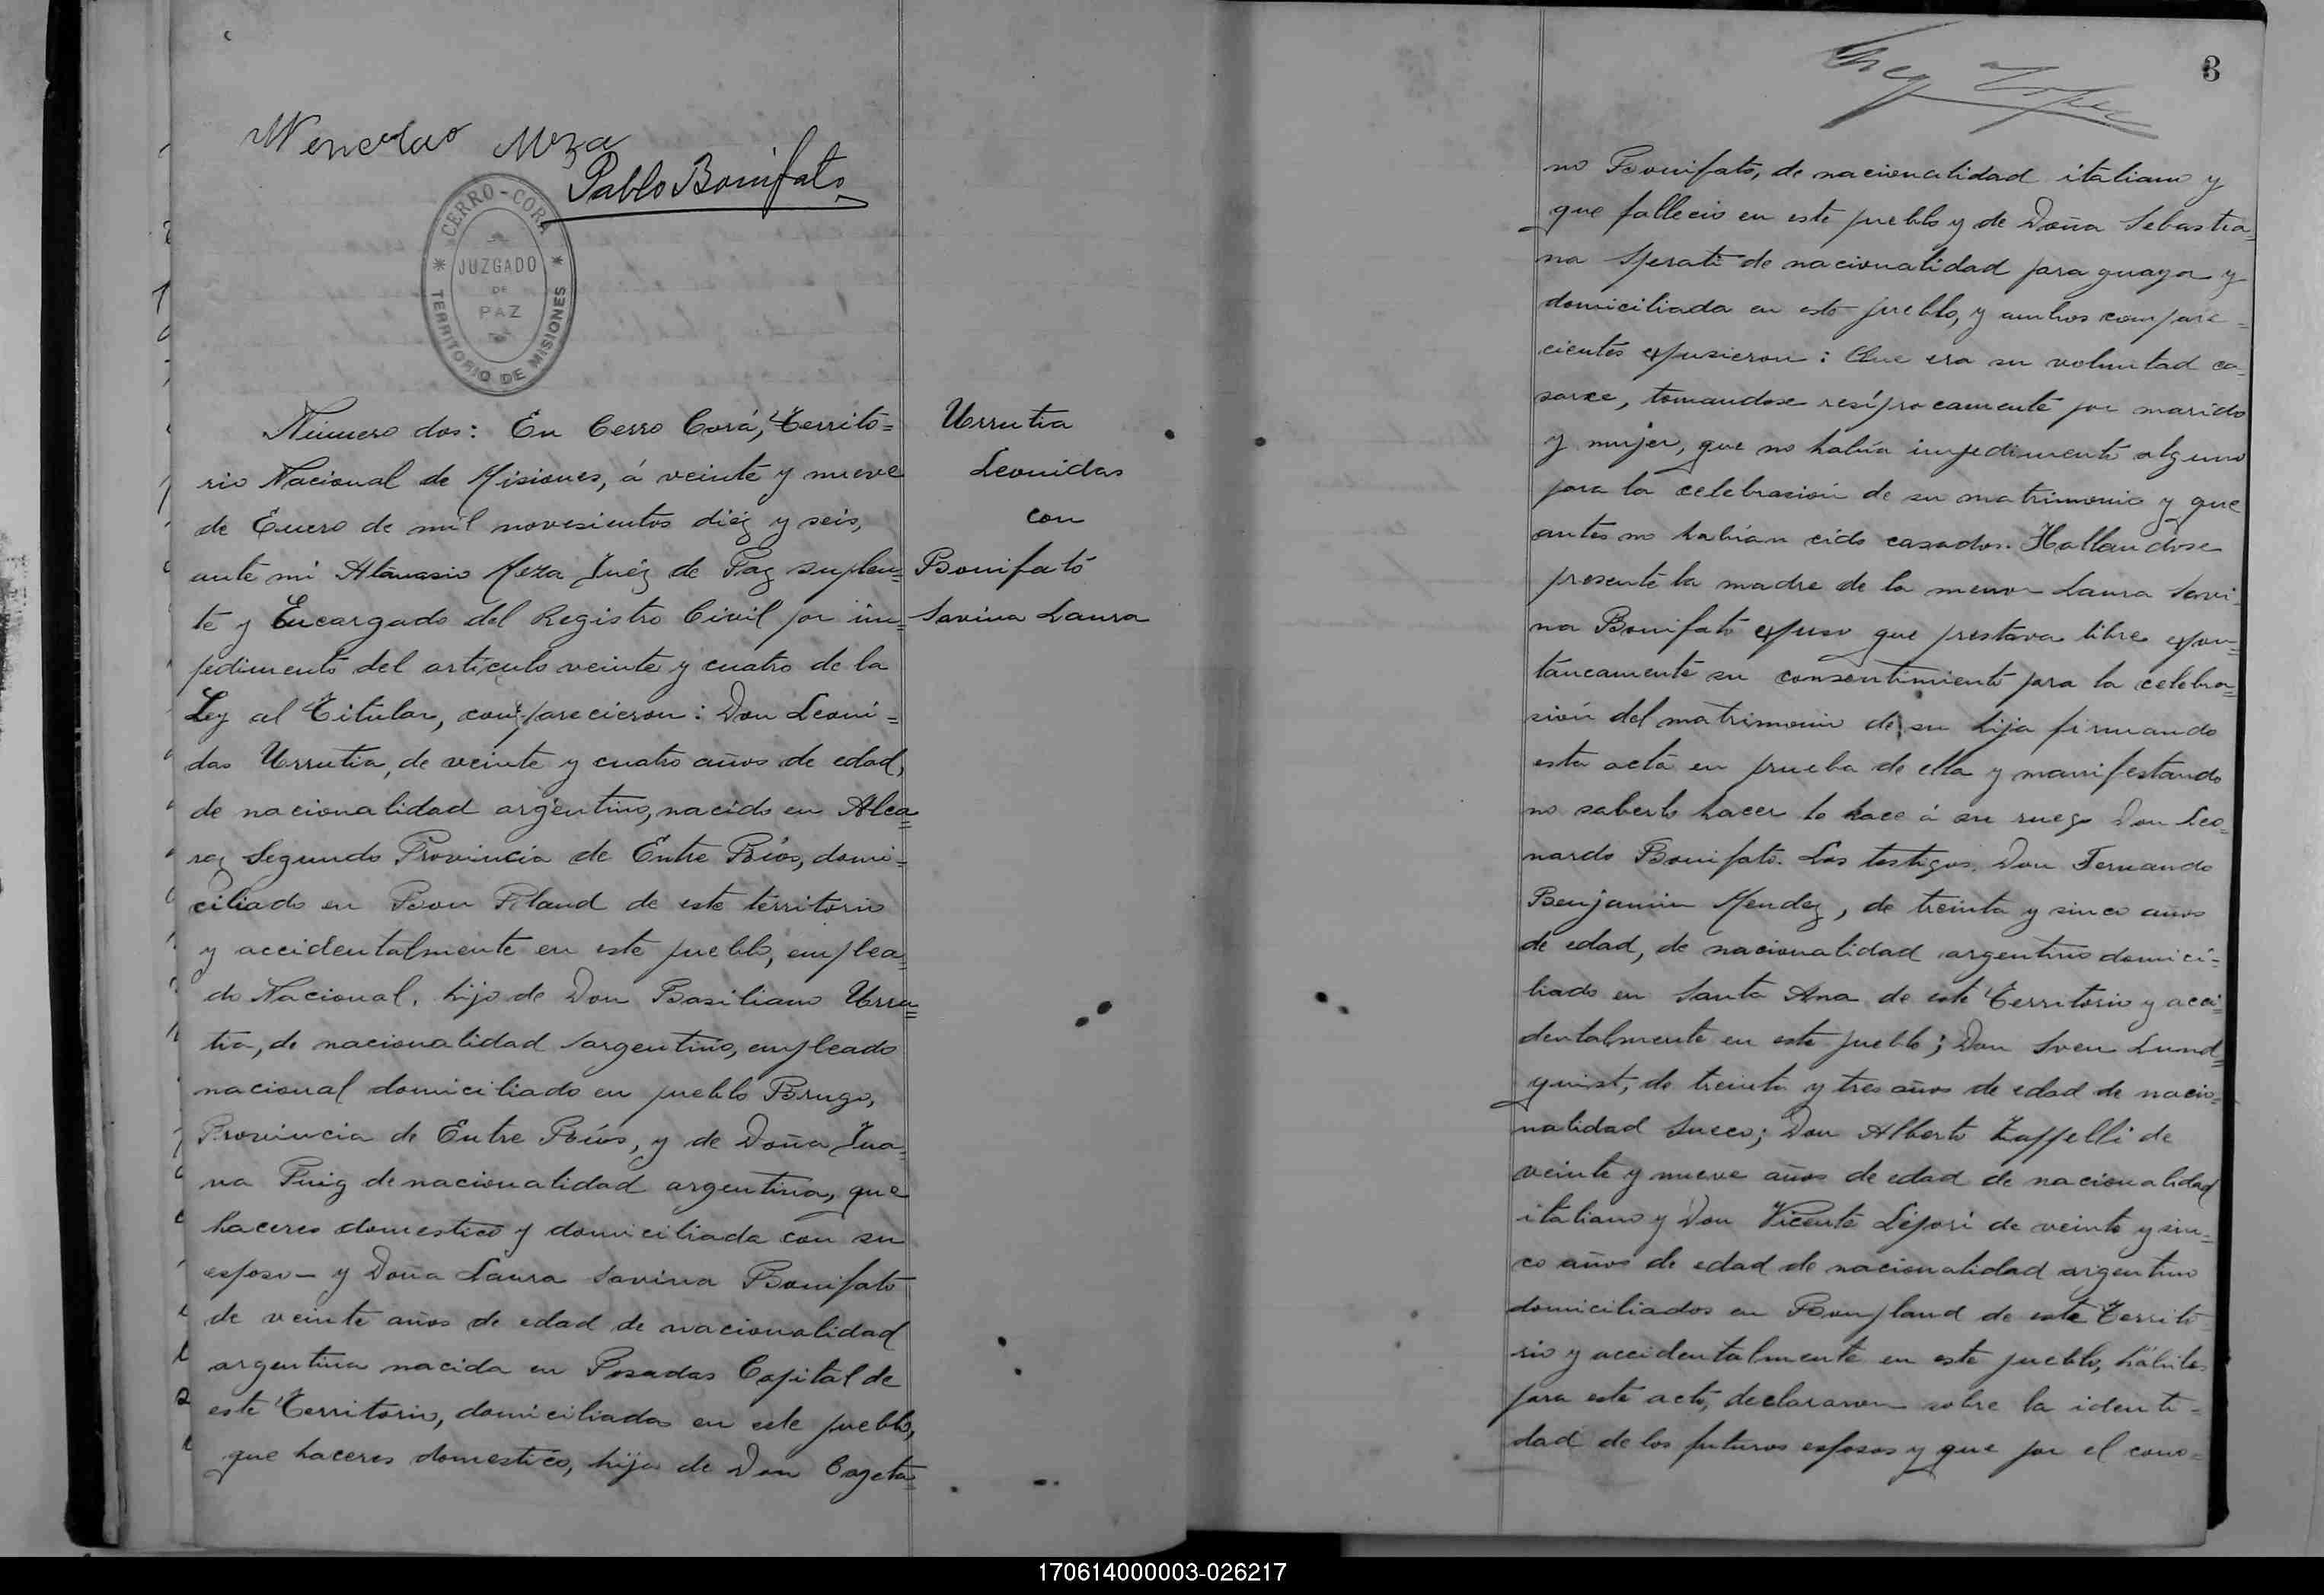 Wenceslao Meza
Pablo Bonifato
CERRO-CORÁ
JUZGADO
DE
PAZ
TERRITORIO DE MISIONES
Número dos: En Cerro Corá, Territo=
rio Nacional de Misiones, á veinte y nueve
de Enero de mil novesientos diéz y seis,
ante mi Atanasio Meza Juéz de Paz suplen=
te y Encargado del Registro Civil por im=
pedimento del artículo veinte y cuatro de la
Ley al Titular, comparecieron: Don Leoni=
das Urrutia, de veinte y cuatro años de edad,
de nacionalidad argentino, nacido en Alca=
raz Segundo Provincia de Entre Ríos, domi=
ciliado en Bon Pland de este territorio
y accidentalmente en este pueblo, emplea=
do Nacional, hijo de Don Basiliano Urru=
tia, de nacionalidad argentino, empleado
nacional domiciliado en pueblo Brugo,
Provincia de Entre Ríos, y de Doña Jua=
na Puig de nacionalidad argentina, que
haceres domestico y domiciliada con su
esposo — y Doña Laura Savina Bonifato
de veinte años de edad de nacionalidad
argentina nacida en Posadas Capital de
este Territorio, domiciliada en este pueblo,
que haceres domestico, hija de Don Cayeta=
Urrutia
Leonidas
con
Bonifato
Savina Laura
3
no Bonifato, de nacionalidad italiano y
que fallecio en este pueblo y de Doña Sebastia=
na Sperati de nacionalidad paraguaya y
domiciliada en este pueblo, y ambos compare=
cientes expusieron: Que era su voluntad ca=
sarce, tomandose resíprocamente por marido
y mujer, que no había impedimento alguno
para la celebrasión de su matrimonio y que
antes no habían cido casados. Hallandose
presente la madre de la menor Laura Savi=
na Bonifato expuso que prestava libre espon=
táneamente su consentimiento para la celebra=
sión del matrimonio de su hija firmando
esta acta en prueba de ella y manifestando
no saberlo hacer lo hace á su ruego Don Leo=
nardo Bonifato. Los testigos. Don Fernando
Benjamin Mendez, de treinta y sinco años
de edad, de nacionalidad argentino domici=
liado en Santa Ana de este Territorio y acci=
dentalmente en este pueblo; Don Sven Lund=
quist, de treinta y tres años de edad de nacio=
nalidad Sueco; Don Alberto Zaffelli de
veinte y nueve años de edad de nacionalidad
italiano y Don Vicente Lépori de veinte y sin=
co años de edad de nacionalidad argentino
domiciliados en Bonpland de este Territo
rio y accidentalmente en este pueblo, hábiles
para este acto, declararon sobre la identi=
dad de los futuros esposos y que por el cono=
170614000003-026217